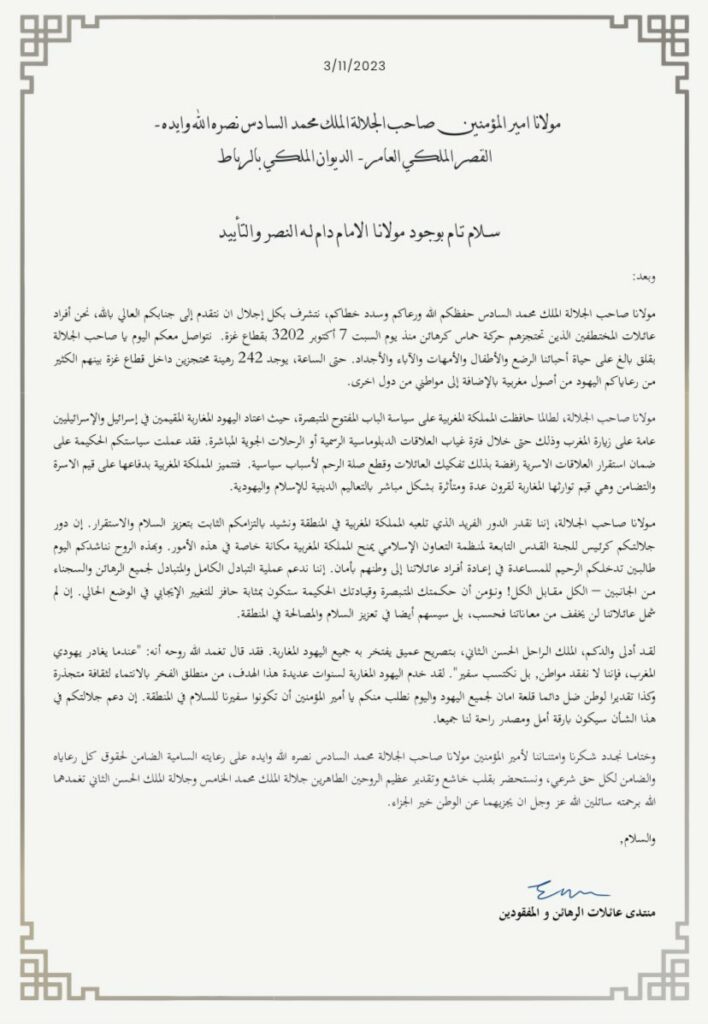 3/11/2023
مولانا امير المؤمنين صاحب الجلالة الملك محمد السادس نصره الله وايده-
القصر الملكي العامر- الديوان الملكي بالرباط
سلام تام بوجود مولانا الامام دام له النصر والتأييد
وبعد:
مولانا صاحب الجلالة الملك محمد السادس حفظكم الله ورعاكم وسدد خطاكم، نتشرف بكل إجلال ان نتقدم إلى جنابكم العالي بالله، نحن أفراد
عائلات المختطفين الذين تحتجزهم حركة حماس كرهائن منذ يوم السبت 7 أكتوبر 3202 بقطاع غزة. نتواصل معكم اليوم يا صاحب الجلالة
بقلق بالغ على حياة أحبائنا الرضع والأطفال والأمهات والآباء والأجداد. حتى الساعة، يوجد 242 رهينة محتجزين داخل قطاع غزة بينهم الكثير
من رعاياكم اليهود من أصول مغربية بالإضافة إلى مواطني من دول اخرى.
مولانا صاحب الجلالة، لطالما حافظت المملكة المغربية على سياسة الباب المفتوح المتبصرة، حيث اعتاد اليهود المغاربة المقيمين في إسرائيل والإسرائيليين
عامة على زيارة المغرب وذلك حتى خلال فترة غياب العلاقات الدبلوماسية الرسمية أو الرحلات الجوية المباشرة. فقد عملت سياستكم الحكيمة على
ضمان استقرار العلاقات الاسرية رافضة بذلك تفكيك العائلات وقطع صلة الرحم لأسباب سياسية. فتتميز المملكة المغربية بدفاعها على قيم الاسرة
والتضامن وهي قيم توارثها المغاربة لقرون عدة ومتأثرة بشكل مباشر بالتعاليم الدينية للإسلام واليهودية.
مولانا صاحب الجلالة، إننا نقدر الدور الفريد الذي تلعبه المملكة المغربية في المنطقة ونشيد بالتزامكم الثابت بتعزيز السلام والاستقرار. إن دور
جلالتكم كرئيس للجنة القدس التابعة لمنظمة التعاون الإسلامي يمنح المملكة المغربية مكانة خاصة في هذه الأمور. وبهذه الروح نناشدكم اليوم
طالبين تدخلكم الرحيم للمساعدة في إعادة أفراد عائلاتنا إلى وطنهم بأمان. إننا ندعم عملية التبادل الكامل والمتبادل لجميع الرهائن والسجناء
من الجانبين – الكل مقابل الكل! ونؤمن أن حكمتك المتبصرة وقيادتك الحكيمة ستكون بمثابة حافز للتغيير الإيجابي في الوضع الحالي. إن لم
شمل عائلاتنا لن يخفف من معاناتنا فحسب، بل سيسهم أيضا في تعزيز السلام والمصالحة في المنطقة.
لقد أدلى والدكم، الملك الراحل الحسن الثاني، بتصريح عميق يفتخر به جميع اليهود المغاربة. فقد قال تغمد الله روحه أنه: "عندما يغادر يهودي
المغرب، فإننا لا نفقد مواطن, بل نكتسب سفير". لقد خدم اليهود المغاربة لسنوات عديدة هذا الهدف، من منطلق الفخر بالانتماء لثقافة متجذرة
وكذا تقديرا لوطن ضل دائما قلعة امان لجميع اليهود واليوم نطلب منكم يا أمير المؤمنين أن تكونوا سفيرنا للسلام في المنطقة. إن دعم جلالتكم في
هذا الشأن سيكون بارقة أمل ومصدر راحة لنا جميعا.
وختاما نجدد شكرنا وامتناننا لأمير المؤمنين مولانا صاحب الجلالة محمد السادس نصره الله وايده على رعايته السامية الضامن لحقوق كل رعاياه
والضامن لكل حق شرعي، ونستحضر بقلب خاشع وتقدير عظيم الروحين الطاهرين جلالة الملك محمد الخامس وجلالة الملك الحسن الثاني تغمدهما
الله برحمته سائلين الله عز وجل ان يجزيهما عن الوطن خير الجزاء.
والسلام,
منتدى عائلات الرهائن و المفقودين